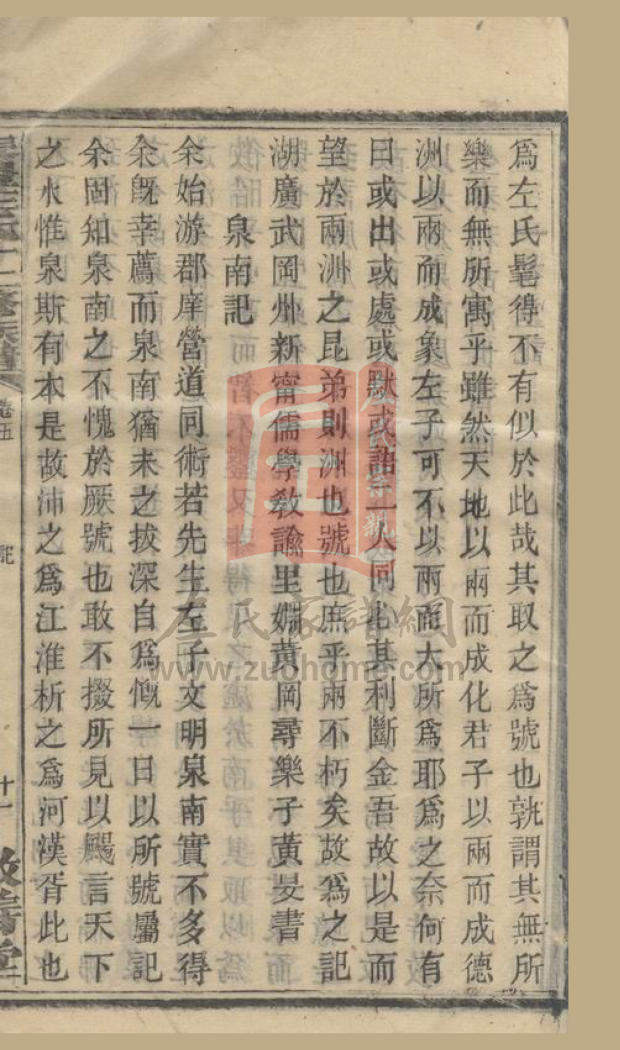 為左氏髦得不有似於此哉其取之為號也孰謂其無所
樂而無所寓乎雖然天地以兩而成化君子以兩而成德
洲以兩而成象左子可不以兩而大所為耶為之奈何有
曰或出或處或默或語二人同心其利斷金吾故以是而
望於兩洲之昆弟則洲也號也庶乎兩不朽矣故為之記
湖廣武岡州新甯儒學敎諭里婣黃岡尋樂子黃旻書
泉南記
余始游郡庠營道同術若先生左子文明泉南實不多得
余旣幸薦而泉南猶未之拔深自為慨一日以所號屬記
余固知泉南之不愧於厥號也敢不掇所見以颺言天下
之水惟泉斯有本是故沛之為江淮析之為河漢胥此也
卷五
記
十一
敦善堂
左氏家譜網
www.zuohome.com